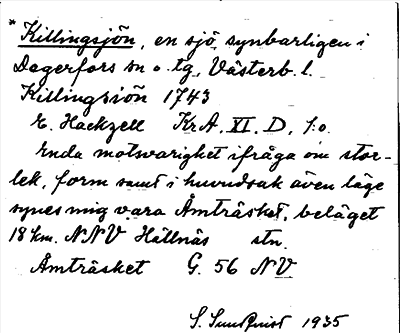 * Killingsjön, en sjö, synbarligen i
Degerfors sn o. tg, Västerb. l.
Killingsiön 1743
E. Hackzell KrA. XI. D, 1:o.
Enda motsvarighet ifråga om stor-
lek, form samt i huvudsak även läge
synes mig vara Åmträsket, beläget
18 km. NNV Hällnäs stn.
Åmträsket G. 56 NV
S. Sundquist 1935